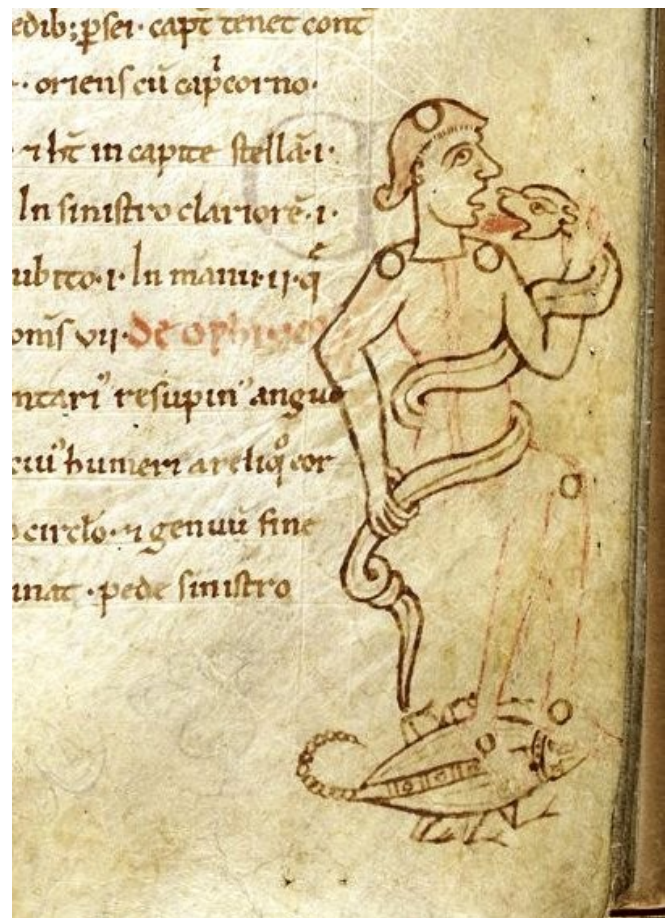 edib; ꝑsei· capt̄ tenet cont̄
· oriens cū cap̲corno·
· ⁊ ht̄ in capite stellā·i·
In sinistro clariorē·i·
ubito·i· In manu·ii· q̄
om̄s vii· de ophiuco
ntari᾽ resupin᾽ angue
ciu᾽ humeri a reliq̊ cor
circło· ⁊ genuū fine
inat · pede sinistro